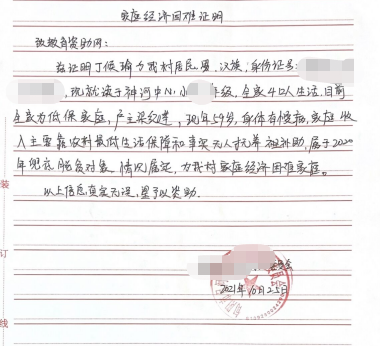 家庭经济困难证明
致教育资助网:
兹证明丁保瑜为我村居民,男,汉族,身份证号:
,现就读于神河中心小 年级,全家4口人生活,目前
全家为低保家庭,户主 ,现年59岁,身体有慢病,家庭收
入主要靠农村最低生活保障和事实无人抚养 补助,属于2020
年 脱贫对象,情况属实,为我村家庭经济困难家庭。
以上信息真实无误,望予以资助。
2021年10月25日
装
订
线